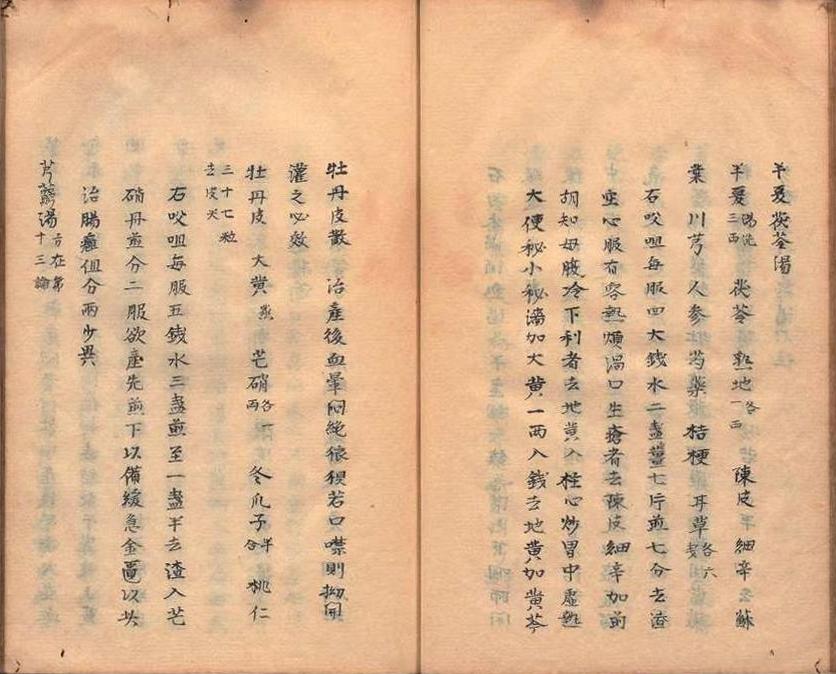 半夏茯苓湯
半夏 湯洗三両 茯苓 熟地 各一両 陳皮 半 細辛 去 蘇
葉 川芎 人参 芍薬 桔梗 甘草 各六
右㕮咀每服四大銭水二盞薑七片煎七分去渣
空心服有客熱煩渇口生瘡者去陳皮細辛加前
胡知母腹冷下利者去地黄入桂心炒胃中虚熱
大便秘小秘澁加大黄一両入銭去地黄加黄芩
牡丹皮散 治産後血暈悶絶狼狽若口噤則拗開
灌之必效
牡丹皮 大黄 蒸 芒硝 各一両 冬瓜子 半合 桃仁
三十七粒去皮尖
右㕮咀每服五銭水三盞煎至一盞半去渣入芒
硝再煎分二服欲産先煎下以備緩急金匱以此
治腸癰但分両少異
芎藭湯 方在第十三論